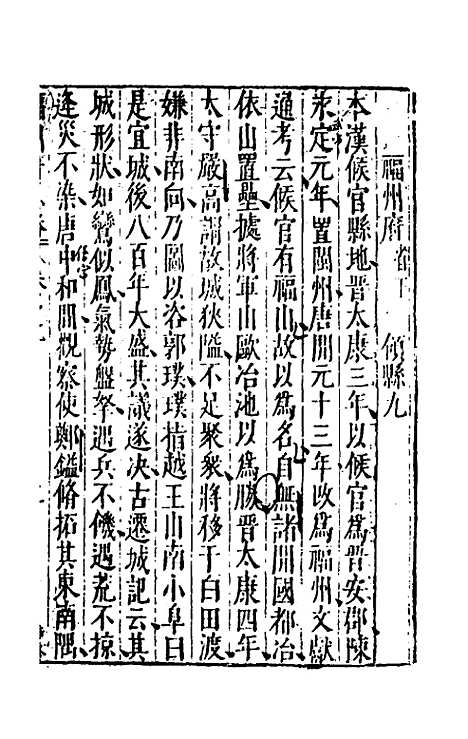 福州府 領縣九
本漢候官縣地晉太康三年以候官為晉安郡陳
永定元年置閩州唐開元十三年改為福州文獻
通考云候官有福山故以為名自無諸開國都冶
依山置壘據將軍山歐冶池以為勝晉太康四年
太守嚴高謂故城狹隘不足聚衆將移于白田渡
嫌非南向乃圖以咨郭璞璞指越王山南小阜曰
是宜城後八百年大盛其議遂决古遷城記云其
城形狀如鸞似鳳氣勢盤拏遇兵不饑遇荒不掠
逢災不染唐中和間觀察使鄭鎰脩拓其東南隅